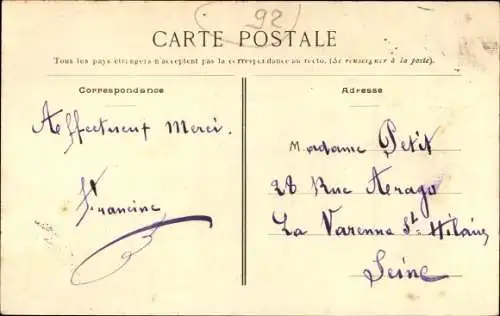 (92)
CARTE POSTALE
Tous les pays étrangers n'acceptent pas la correspondance au recto. (Se renseigner à la poste).
Correspondance
Affectueux Merci.
Francine
Adresse
Madame Petit
28 Rue Aerago
La Varenne St-Hilaire
Seine